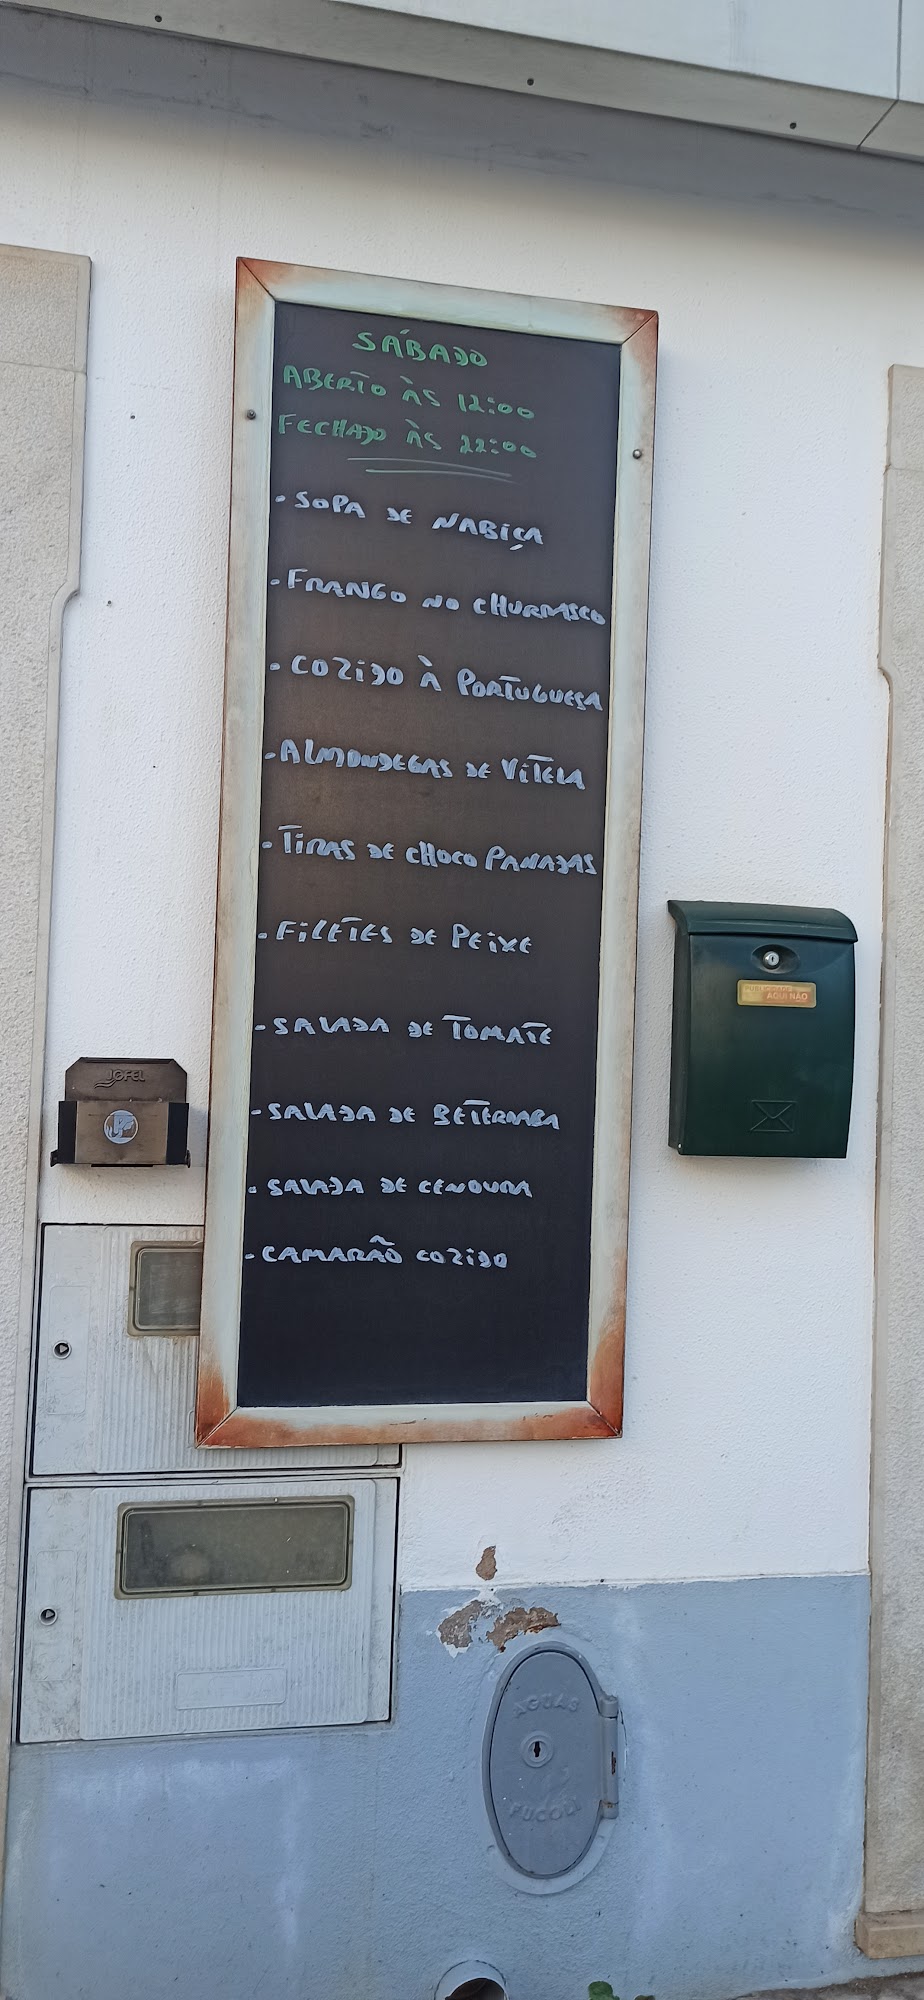 SÁBADO
ABERTO ÀS 12:00
FECHADO ÀS 22:00
- SOPA DE NABIÇA
- FRANGO NO CHURRASCO
- COZIDO À PORTUGUESA
- ALMONDEGAS DE VITELA
- TIRAS DE CHOCO PANADAS
- FILETES DE PEIXE
- SALADA DE TOMATE
- SALADA DE BETERRABA
- SALADA DE CENOURA
- CAMARÃO COZIDO
PUBLICIDADE
AQUI NÃO
JOFEL
ÁGUAS
FUCOLI